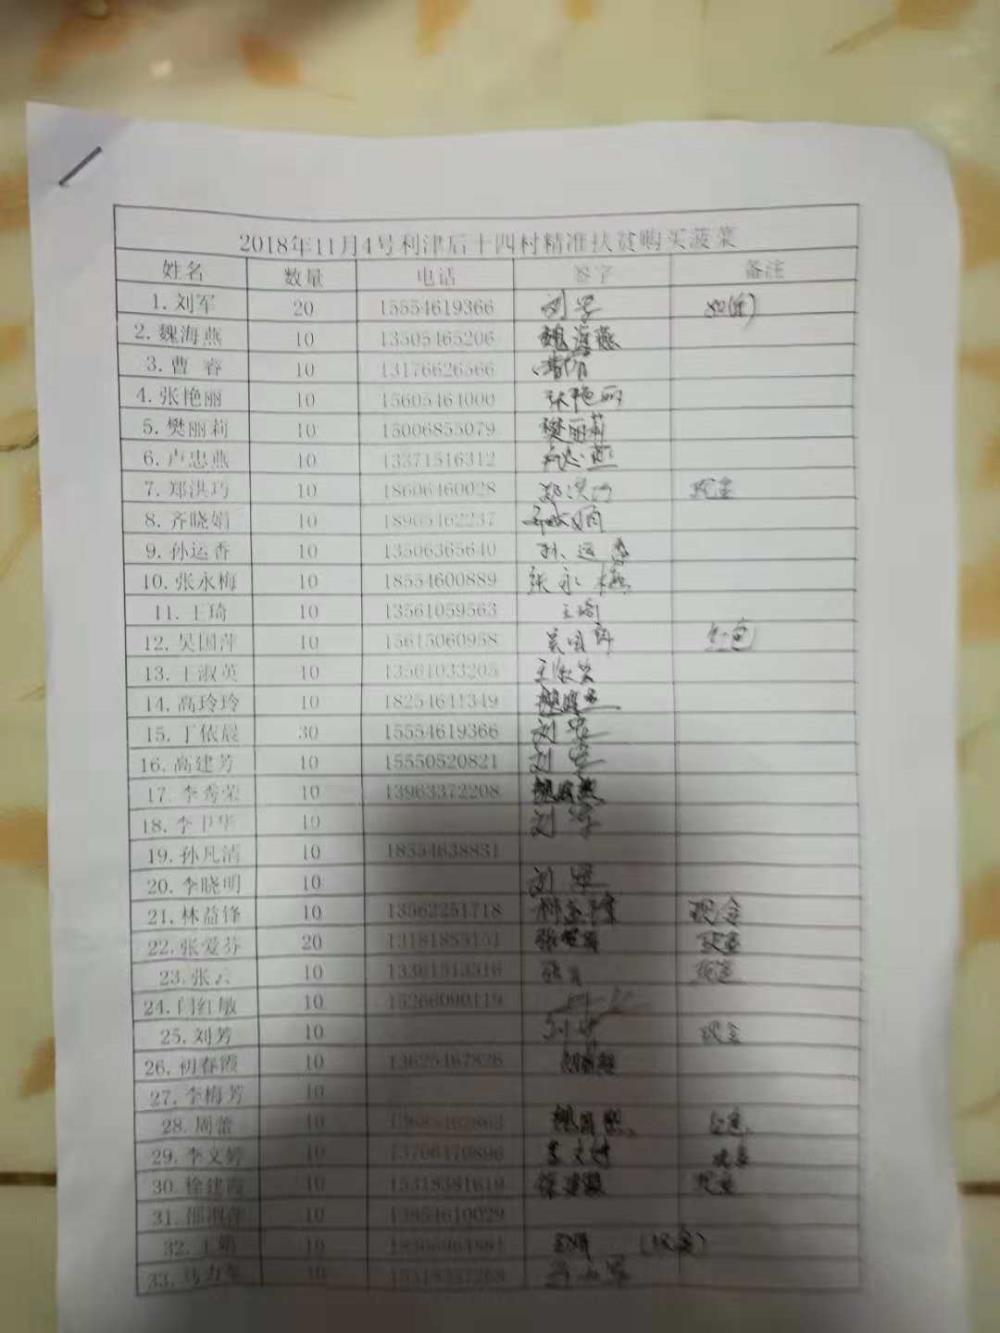 2018年11月4号利津后十四村精准扶贫购买菠菜
姓名 数量 电话 签字 备注
1.刘军 20 15554619366 刘军
2.魏海燕 10 13505465206 魏海燕
3.曹睿 10 13176626566 曹睿
4.张艳丽 10 15605461000 张艳丽
5.樊丽莉 10 15006855079 樊丽莉
6.卢忠燕 10 13371516312 卢忠燕
7.郑洪巧 10 18606460028 郑洪巧 现金
8.齐晓娟 10 18905462237
9.孙运香 10 13506365640 孙运香
10.张永梅 10 18554600889 张永梅
11.王琦 10 13561059563 王琦
12.吴国萍 10 15615060958 吴国萍
13.王淑英 10 13561033205 王淑英
14.高玲玲 10 18254611349
15.丁依晨 30 15554619366 刘军
16.高建芳 10 15550520821 刘军
17.李秀荣 10 13963372208
18.李卫华 10 刘军
19.孙凡清 10 18554638831
20.李晓明 10 刘军
21.林益锋 10 13562251718 现金
22.张爱芬 20 张爱芬 现金
23.张云 10 张云 现金
24.闫红敏 10 15266090119
25.刘芳 10 刘芳 现金
26.初春霞 10 13625467826
27.李梅芳 10
28.周蕾 10
29.李文婷 10 13706470896 李文婷 现金
30.徐建霞 10 15318381619 徐建霞 现金
31. 10 13854610029
32.王娟 10 (现金)
33. 10